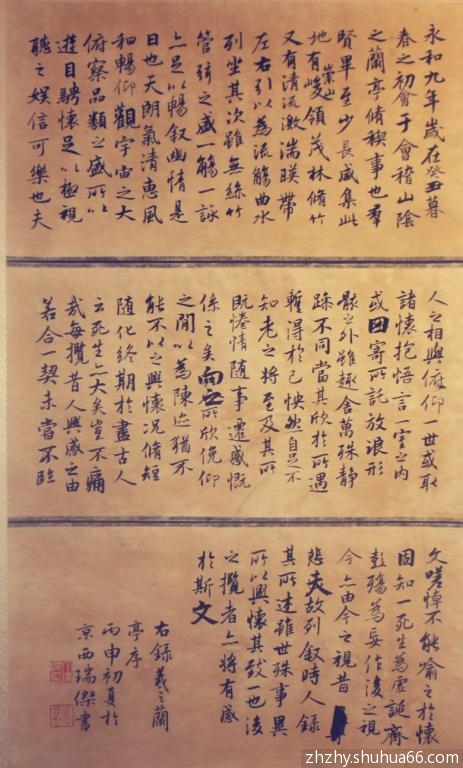 永和九年歲在癸丑暮
春之初會于會稽山陰
之蘭亭脩稧事也羣
賢畢至少長咸集此
地有崇山峻領茂林脩竹
又有清流激湍暎帶
左右引以為流觴曲水
列坐其次雖無絲竹
管弦之盛一觴一詠
亦足以暢叙幽情是
日也天朗氣清惠風
和暢仰觀宇宙之大
俯察品類之盛所以
遊目騁懷足以極視
聽之娛信可樂也夫
人之相與俯仰一世或取
諸懷抱悟言一室之內
或因寄所託放浪形
骸之外雖趣舍萬殊靜
躁不同當其欣於所遇
蹔得於己怏然自足不
知老之將至及其所
既惓情隨事遷感慨
係之矣向之所欣俛仰
之間以為陳迹猶不
能不以之興懷況脩短
隨化終期於盡古人
云死生亦大矣豈不痛
哉每攬昔人興感之由
若合一契未嘗不臨
文嗟悼不能喻之於懷
固知一死生為虛誕齊
彭殤為妄作後之視
今亦由今之視昔
悲夫故列叙時人錄
其所述雖世殊事異
所以興懷其致一也後
之攬者亦將有感
於斯文
右錄羲之蘭
亭序
丙申初夏於
京西瑞傑書
zhzhy.shuhua66.com